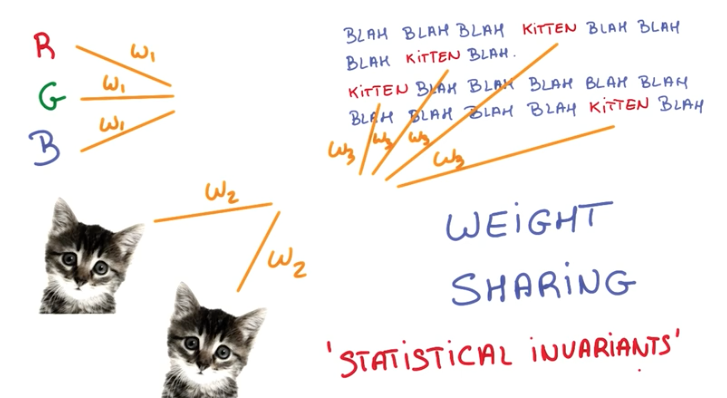 R
W1
G
W1
B
W1
BLAH BLAH BLAH KITTEN BLAH BLAH
BLAH KITTEN BLAH.
KITTEN BLAH BLAH BLAH BLAH BLAH
BLAH BLAH BLAH BLAH KITTEN BLAH
W3 W3 W3 W3
W2
W2
WEIGHT
SHARING
'STATISTICAL INVARIANTS'